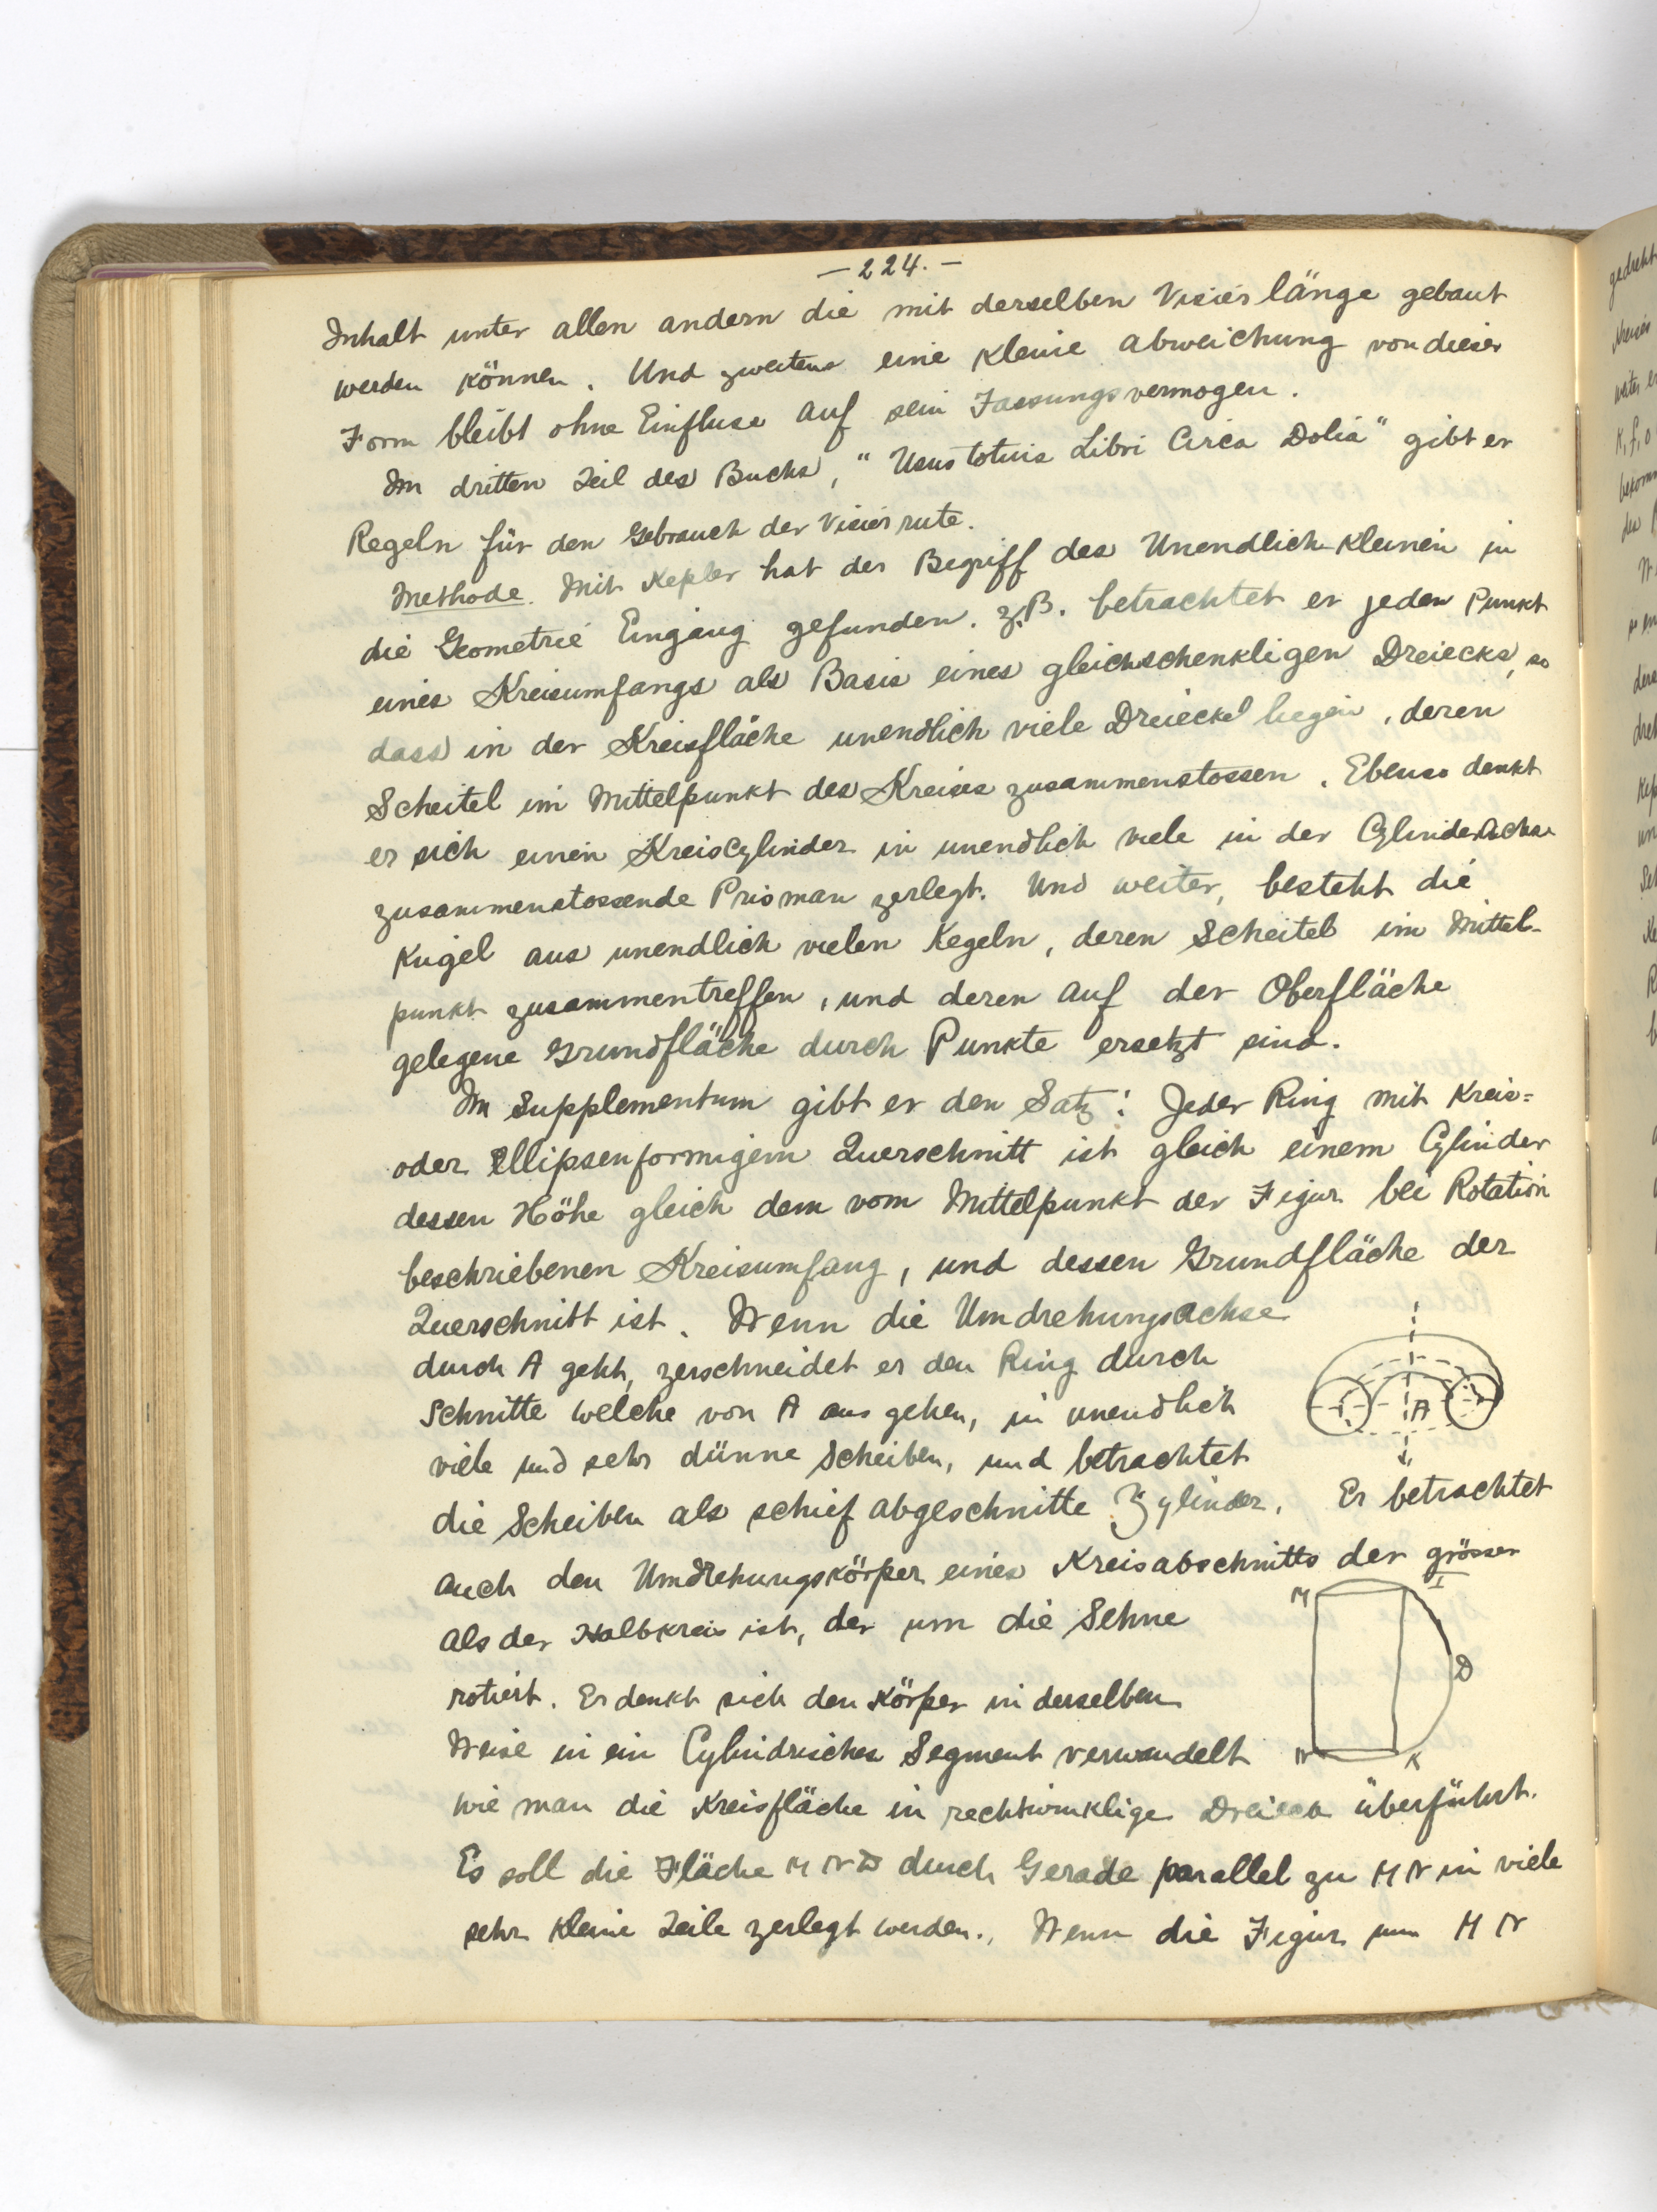 — 224. —
Inhalt unter allen andern die mit derselben Visierlänge gebaut
werden können. Und zweitens eine kleine abweichung von dieser
Form bleibt ohne Einfluss auf sein Fassungsvermogen.
Im dritten Teil des Buchs, "Usus totius Libri Circa Dolia" gibt er
Regeln für den Gebrauch der Visierrute.
Methode. Mit Kepler hat der Begriff des Unendlich-kleinen in
die Geometrie Eingang gefunden. z.B. betrachtet er jeden Punkt
eines Kreisumfangs als Basis eines gleichschenkligen Dreiecks, so
dass in der Kreisfläche unendlich viele Dreiecke liegen, deren
Scheitel im Mittelpunkt des Kreises zusammenstossen. Ebenso denkt
er sich einen Kreiscylinder in unendlich viele in der Cylinderachse
zusammenstossende Prisman zerlegt. Und weiter, besteht die
Kugel aus unendlich vielen Kegeln, deren Scheitel im Mittel-
punkt zusammentreffen, und deren auf der Oberfläche
gelegene Grundfläche durch Punkte ersetzt sind.
Im Supplementum gibt er den Satz: Jeder Ring mit Kreis=
oder Ellipsenformigem Querschnitt ist gleich einem Cylinder
dessen Höhe gleich dem vom Mittelpunkt der Figur bei Rotation
beschriebenen Kreisumfang, und dessen Grundfläche der
Querschnitt ist. Wenn die Umdrehungsachse
durch A geht, zerschneidet er den Ring durch
Schnitte welche von A aus gehen, in unendlich
viele und sehr dünne Scheiben, und betrachtet
A
die Scheiben als schief abgeschnitte Zylinder. Er betrachtet
auch den Umdrehungskörper eines Kreisabschnitts der grösser
als der Halbkreis ist, der um die Sehne
rotiert. Er denkt sich den Körper in derselben
Weise in ein Cylindrisches Segment verwandelt
M I D N K
wie man die Kreisfläche in rechtwinklige Dreieck überführt.
Es soll die Fläche M N D durch Gerade parallel zu M N in viele
sehr kleine Teile zerlegt werden. Wenn die Figur um M N